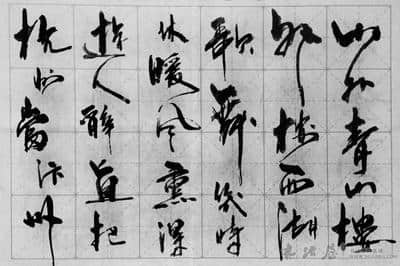 山外青山樓
外楼西湖
歌舞幾時
休暖风熏得
遊人醉直把
杭州當汴州